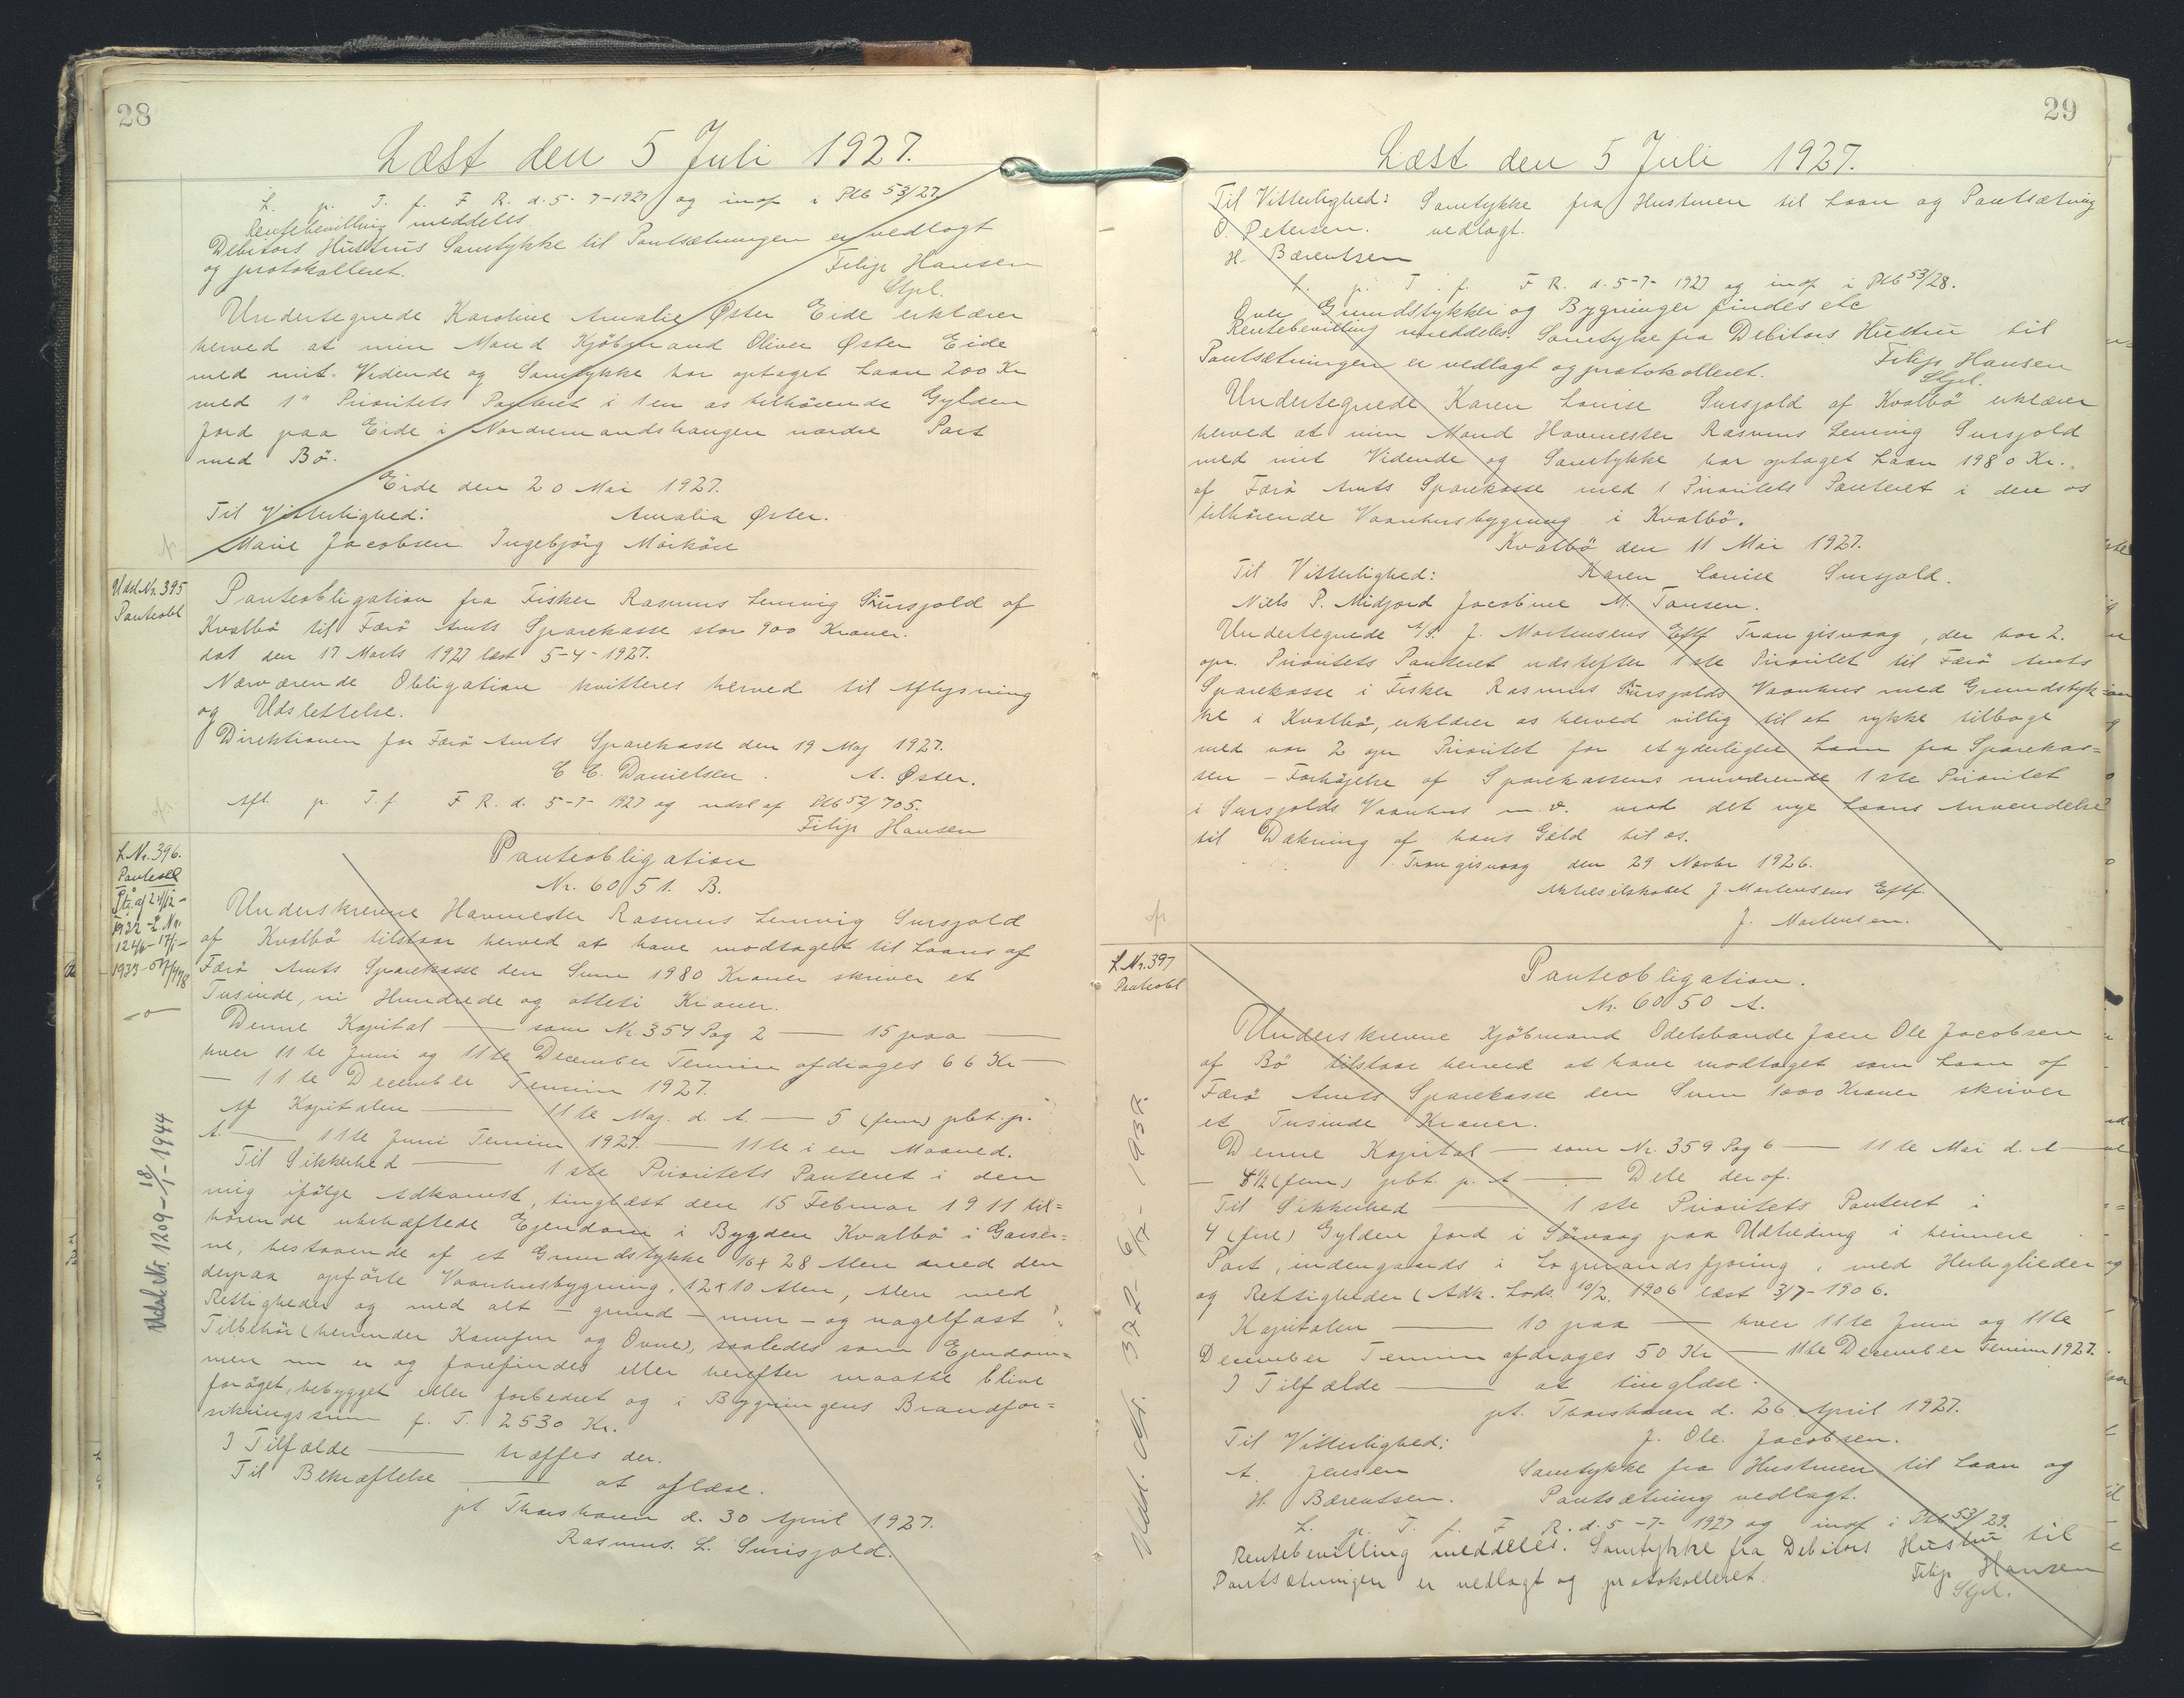 28
Læst den 5 Juli 1927.
L. p. T. f. F R. d. 5-7-1927 og indf i Plb 53/27
Rentebevilling meddeles
Debitors Hustrus Samtykke til Pantsætningen er vedlagt
og protokolleret.
Filip Hansen
Stpl.
Undertegnede Karoline Amalie Øster Eide erklærer
herved at min Mand Kjöbmand Oliver Øster Eide
med mit Vidende og Samtykke har optaget Laan 200 Kr
med 1" Prioritets Panteret i 1 en os tilhörende Gylden
Jord paa Eide i Nordremandshaugen nordre Part
med Bö.
Eide den 20 Mai 1927.
Til Vitterlighed: Amalia Øster.
Marie Jacobsen. Ingebjörg Mörköre
Udsl. Nr. 395
Panteobl
Panteobligation fra Fisker Rasmus Lemvig Sursjold af
Kvalbö til Færö Amts Sparekasse stor 900 Kroner.
dat den 17 Marts 1927 læst 5-4-1927.
Nærværende Obligation kvitteres herved til Aflysning
og Udslettelse.
Direktionen for Færö Amts Sparekasse den 19 Maj 1927.
C C. Danielsen. A. Øster.
Afl. p. T. f. F R. d. 5-7-1927 og udsl af Plb 52/705.
Filip Hansen
L. Nr. 396.
Panteobl
1932 - L. Nr.
Udsl. Nr. 1209 - 18/1 - 1944
Panteobligation
Nr. 6051. B.
Underskrevne Havnester Rasmus Lemvig Sursjold
af Kvalbö tilstaar herved at have modtaget til Laans af
Færö Amts Sparekasse den Sum 1980 Kroner skriver et
Tusinde, ni Hundrede og otteti Kroner.
Denne Kapital — som Nr. 354 Pag 2 — 15 paa —
hver 11te Juni og 11te December Termin afdrages 66 Kr —
— 11te December Termin 1927.
Af Kapitalen — 11te Maj. d. A. — 5 (fem) pbt. p.
A. — 11te Juni Termin 1927. — 11te i en Maaned.
Til Sikkerhed — 1ste Prioritets Panteret i den
mig ifölge Adkomst, tinglæst den 15 Februar 1911 til=
hörende ubehæftede Ejendom i Bygden Kvalbö i Garser=
ne, bestaaende af et Grundstykke 16 x 28 Alen med den
derpaa opförte Vaanhusbygning, 12 x 10 Alen, Alen med
Rettigheder og med alt — grund — mur — og nagelfast
Tilbehör (herunder Komfur og Ovne), saaledes som Ejendom=
men nu er og forefindes eller herefter maatte blive
foröget, bebygget eller forbedret og i Bygningens Brandfor=
sikringssum p. T. 2530 Kr.
I Tilfælde — træffes der.
Til Bekræftelse — at aflæse.
pt. Thorshavn d. 30 April 1927.
Rasmus. L. Surisjold.
29
Læst den 5 Juli 1927.
Til Vitterlighed: Samtykke fra Hustruen til Laan og Pantsætning
O. Petersen. vedlagt.
H. Bærentsen
L. p. T. f. F R. d. 5-7-1927 og indf i Plb 53/28.
Over Grundstykker og Bygninger findes etc
Rentebevilling meddeles. Samtykke fra Debitors Hustru til
Pantsætningen er vedlagt og protokolleret.
Filip Hansen
Stpl.
Undertegnede Karen Louise Sursjold af Kvalbö erklærer
herved at min Mand Havnester Rasmus Lemvig Sursjold
med mit Vidende og Samtykke har optaget Laan 1980 Kr.
af Færö Amts Sparekasse med 1 Prioritets Panteret i den os
tilhörende Vaanhusbygning i Kvalbö.
Kvalbö den 11 Mai 1927.
Til Vitterlighed: Karen Louise Sursjold.
Niels P. Midjord Jacobine M. Tausen.
Undertegnede A/S. J. Mortensens Eftf Trangisvaag, der har 2.
opr. Prioritets Panteret næstefter 1ste Prioritet til Færö Amts
Sparekasse i Fisker Rasmus Sursjolds Vaanhus med Grundstyk=
ke i Kvalbö, erklærer os herved villig til at rykke tilbage
med vor 2 opr Prioritet for et yderligere Laan fra Sparekas=
sen — Forhöjelse af Sparekassens nuværende 1ste Prioritet
i Sursjolds Vaanhus m. v. mod det nye Laans Anvendelse
til Dækning af hans Gæld til os.
Trangisvaag den 29 Novbr 1926.
Aktieselskabet J. Mortensens Eftf.
J. Mortensen.
L. Nr. 397
Panteobl
Udsl. Nr. 372
Panteobligation.
Nr. 6050 A.
Underskrevne Kjöbmand Odelsbonde Joen Ole Jacobsen
af Bö tilstaar herved at have modtaget som Laan af
Færö Amts Sparekasse den Sum 1000 Kroner skriver
et Tusinde Kroner.
Denne Kapital — som Nr. 359 Pag 6 — 11te Mai d. A —
— (fem) pbt. p. A — Dele deraf.
Til Sikkerhed — 1ste Prioritets Panteret i
4 (fire) Gylden Jord i Sörvaag paa Udheding i heimere
Part, indengaards i Logmandsfjöring, med Herligheder
og Rettigheder (Adk. Lods. 10/2. 1906 læst 3/7-1906.
Kapitalen — 10 paa — hver 11te Juni og 11te
December Termin afdrages 50 Kr — 11te December Termin 1927.
I Tilfælde — at tinglæse.
pt. Thorshavn d. 26 April 1927.
Til Vitterlighed: J. Ole. Jacobsen.
A. Jensen Samtykke fra Hustruen til Laan og
H. Bærentsen. Pantsætning vedlagt.
L. p. T. f. F. R. d. 5-7-1927 og indf i Plb 53/29.
Rentebevilling meddeles. Samtykke fra Debitors Hustru til
Pantsætningen er vedlagt og protokolleret.
Filip Hansen
Stpl.